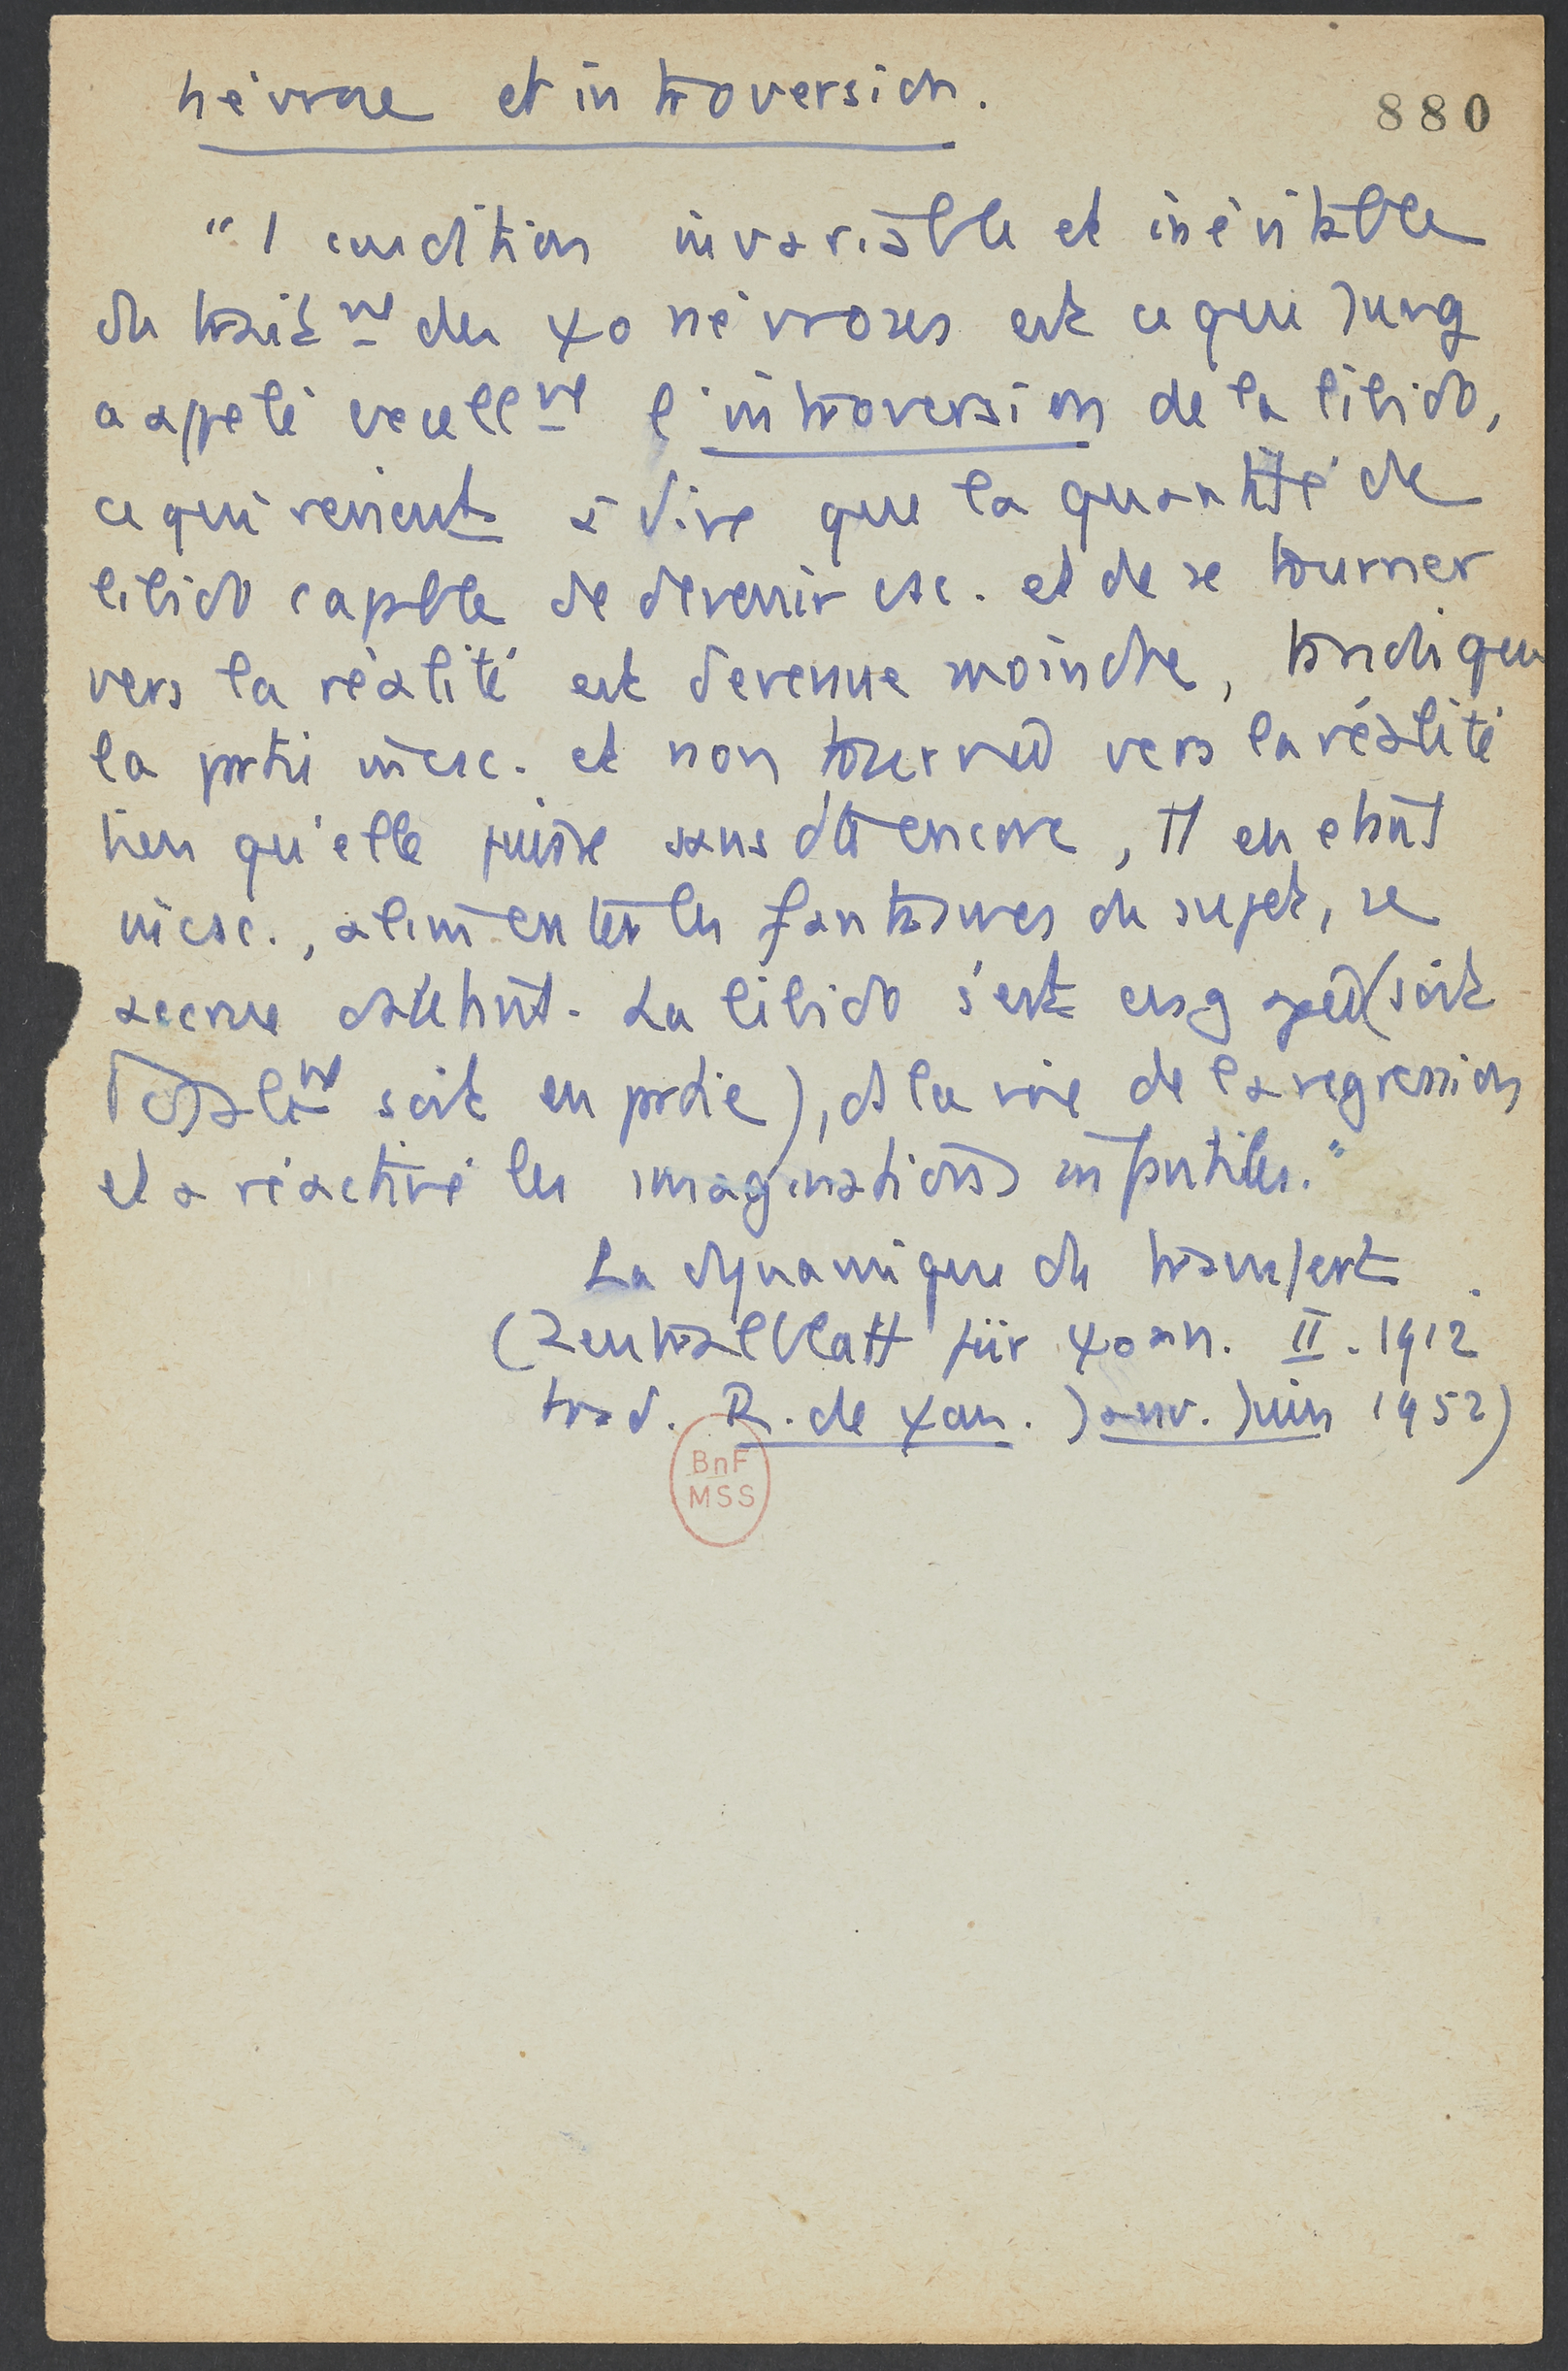 névrose et introversion.
880
"1 condition invariable et inévitable
du trait^nt des ψo névroses est ce que Jung
a apelé excell^nt l'introversion de la libido,
ce qui revient à dire que la quantité de
libido capable de devenir csc. et de se tourner
vers la réalité est devenue moindre, tandis que
la partie incsc. et non tournée vers la réalité
bien qu'elle puisse sans dte encore, tt en étant
incsc., alimenter les fantasmes du sujet, se
accrue d'autant. La libido s'est engagée (soit
totale^nt soit en partie), ds la voie de la regression
et a réactivé les imaginations infantiles."
La dynamique du transfert.
(Zentralblatt für ψoan. II. 1912
trad. R. de ψan. Janv. Juin 1952)
BnF
MSS